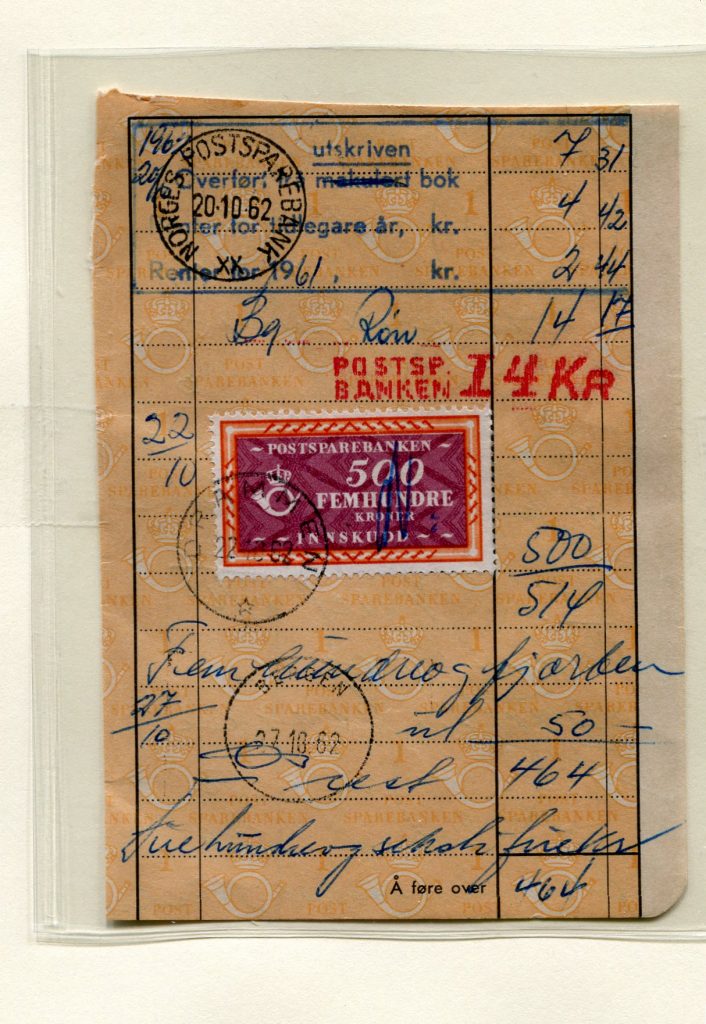 utskriven
Overført frå makulert bok 7 31
NORGES POSTSPAREBANK
20·10·62
XX
Renter for tidlegare år, kr. 4 42
Renter for 1961, kr. 2 44
14 17
POSTSP. BANKEN 14 KR
22/10
POSTSPAREBANKEN
500
FEMHUNDRE
KRONER
INNSKUDD
22 10 62
500
514
Femhundreogfjorten
27/10
ut 50 —
BERGEN
27.10.62
rest 464
Å føre over 464
POST
SPAREBANKEN